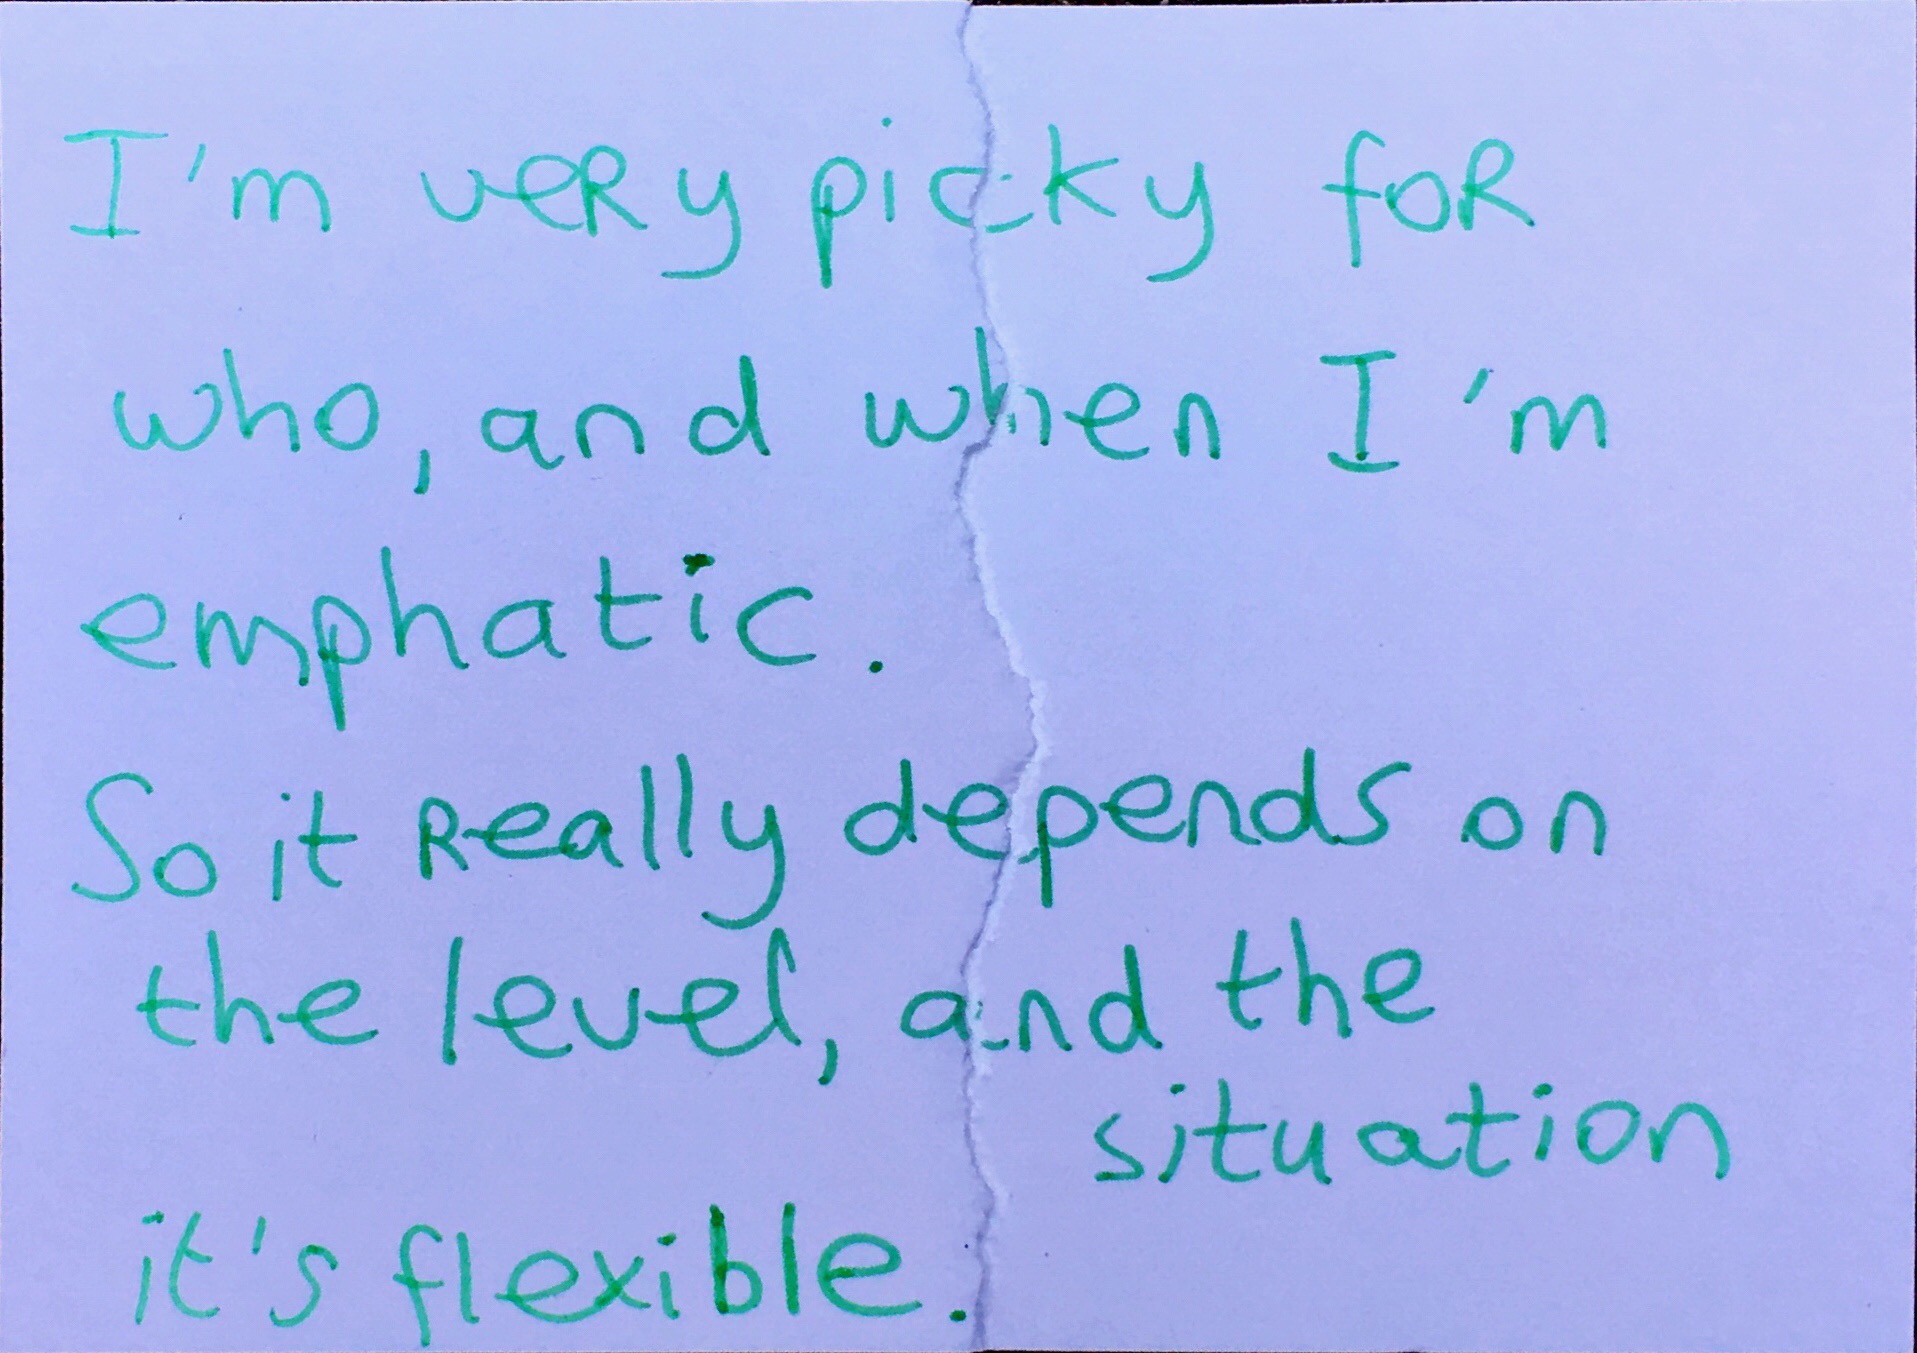 I'm very picky for
who, and when I'm
emphatic.
So it really depends on
the level, and the
situation
it's flexible.